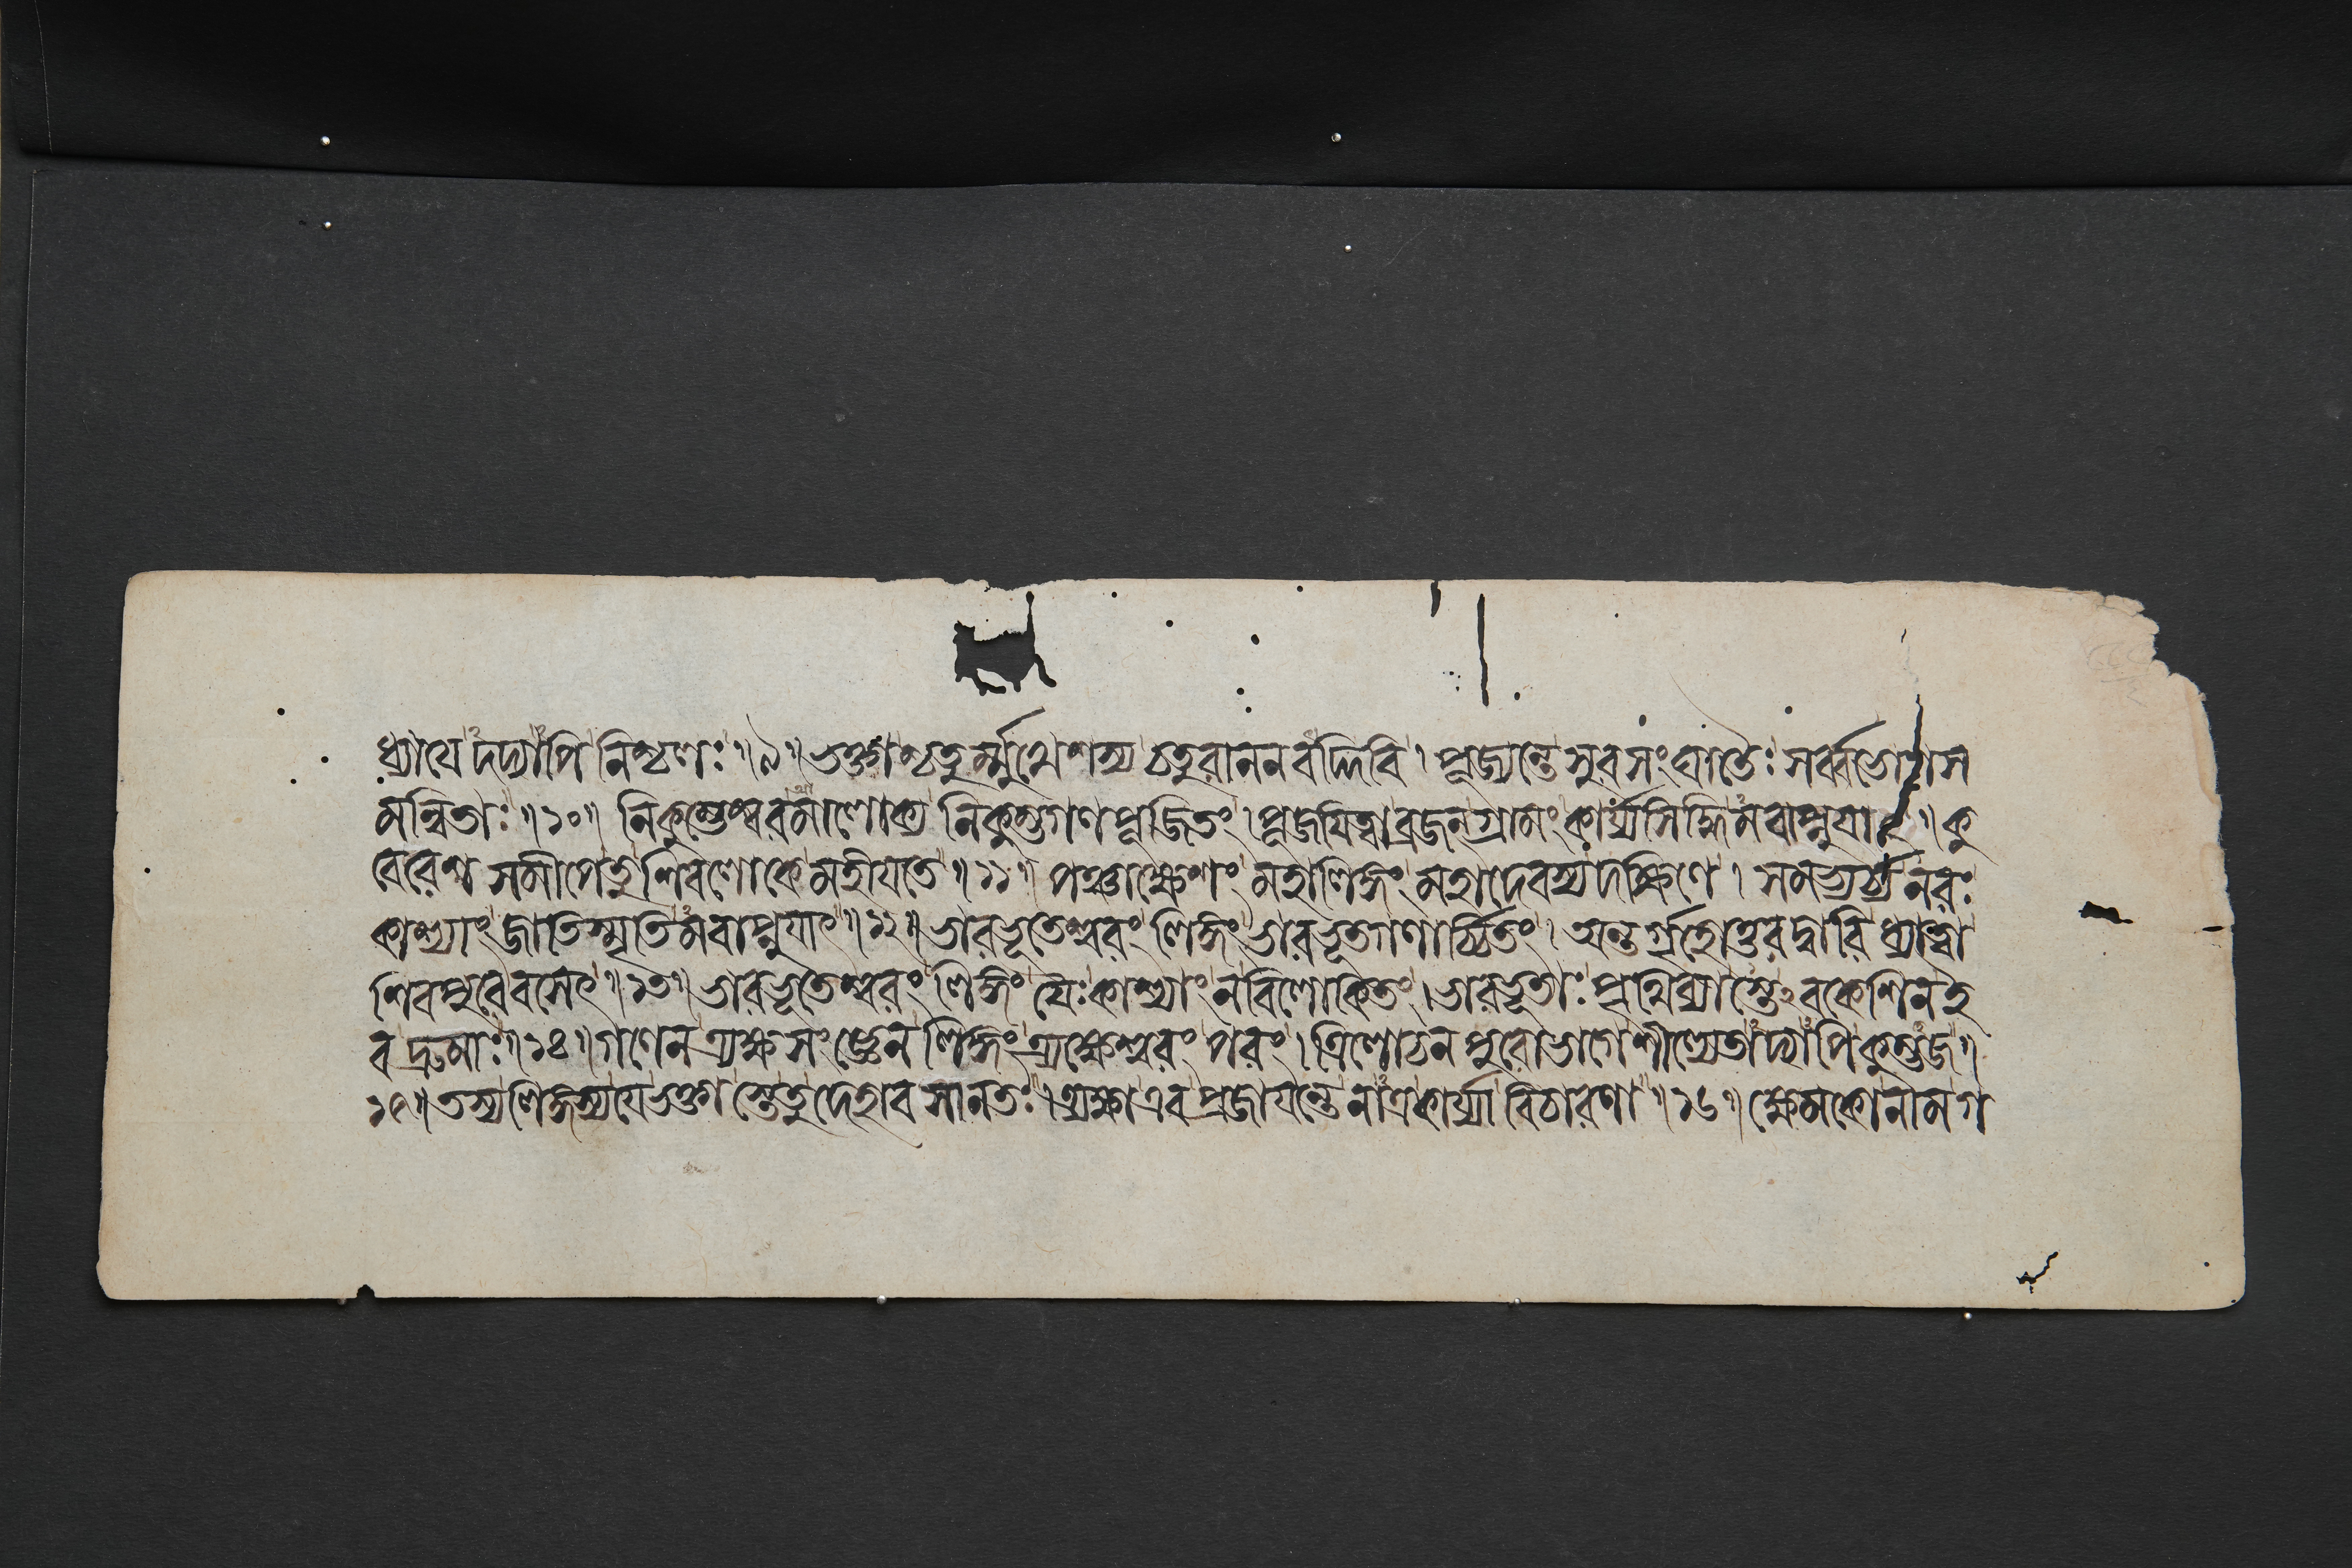 ধ্যায়েদদ্যাপি নিশ্চলঃ ॥ ৯ ॥ ভক্তাশ্চতুর্ম্মুখেশস্য চতুরাননবদ্দিবি । পূজ্যন্তে সুরসংঘাতৈঃ সর্ব্বভোগস
মন্বিতাঃ ॥ ১০ ॥ নিকুম্ভেশ্বরমালোক্য নিকুম্ভগণপূজিতং । পূজয়িত্বা ব্রজন্গ্রামং কার্য্যসিদ্ধিমবাপ্নুয়াৎ ॥ কু
বেরেশসমীপে তু শিবলোকে মহীয়তে ॥ ১১ ॥ পঞ্চাক্ষেশং মহালিঙ্গং মহাদেবস্য দক্ষিণে । সমভ্যর্চ্য নরঃ
কাশ্যাং জাতিস্মৃতিমবাপ্নুয়াৎ ॥ ১২ ॥ ভারভূতেশ্বরং লিঙ্গং ভারভূতগণার্চ্চিতং । অন্তর্গৃহোত্তরদ্বারি ধ্যাত্বা
শিবপুরে বসেৎ ॥ ১৩ ॥ ভারভূতেশ্বরং লিঙ্গং যৈঃ কাশ্যাং ন বিলোকিতং । ভারভূতাঃ পৃথিব্যাস্তে ঽবকেশিন ই
ব দ্রুমাঃ ॥ ১৪ ॥ গণেন ত্র্যক্ষসংজ্ঞেন লিঙ্গং ত্র্যক্ষেশ্বরং পরং । ত্রিলোচনপুরোভাগে শীল্যেতাদ্যাপি কুম্ভজ ॥
১৫ ॥ তস্য লিঙ্গস্য যে ভক্তাস্তে তু দেহাবসানতঃ । ত্র্যক্ষা এব প্রজায়ন্তে নাত্র কার্য্যা বিচারণা ॥ ১৬ ॥ ক্ষেমকো নাম গ